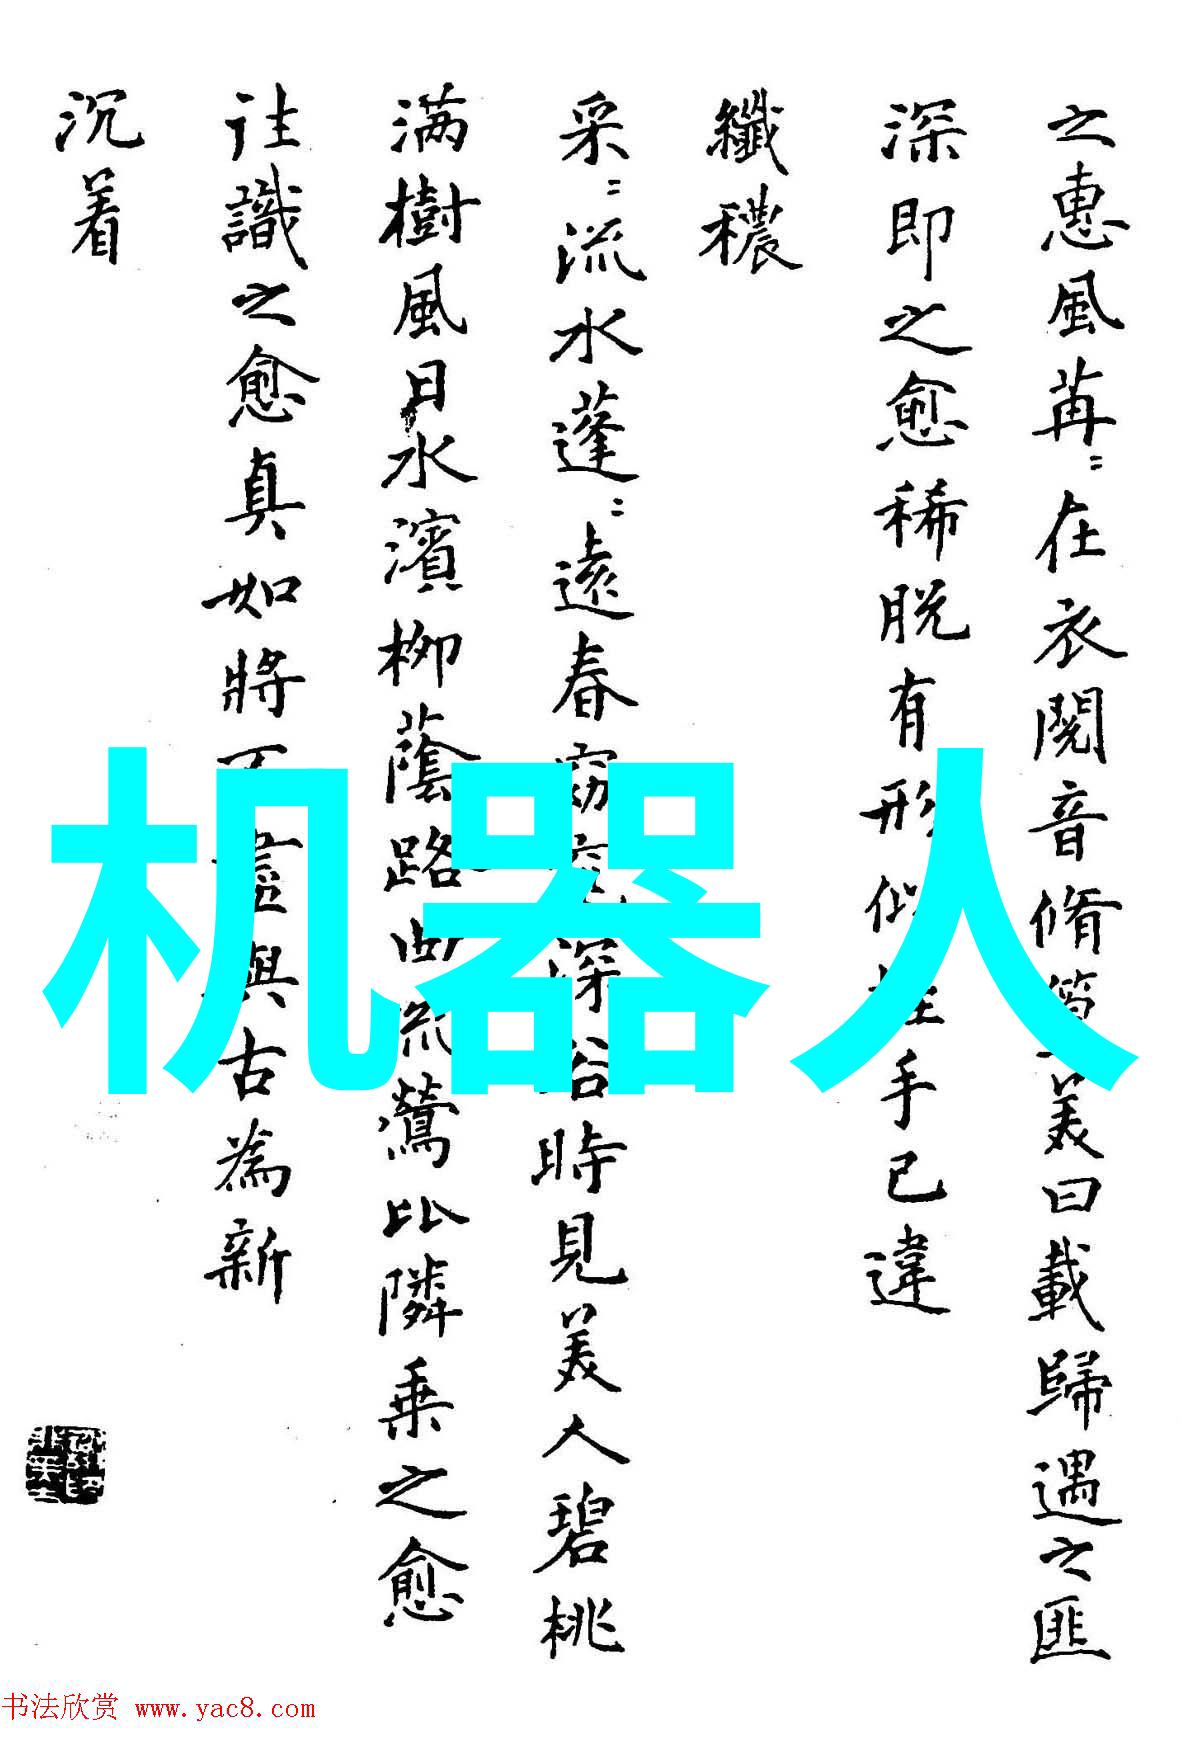 之惠風苒〻在衣閱音脩篁美曰載歸遇之匪
深即之愈稀脱有形似握手已違
纖穠
采〻流水蓬〻遠春窈窕深谷時見美人碧桃
满樹風日水濱柳蔭路曲流鶯比隣乗之愈
往識之愈真如將不盡與古為新
沉着
机器人
书法欣赏 www.yac8.com